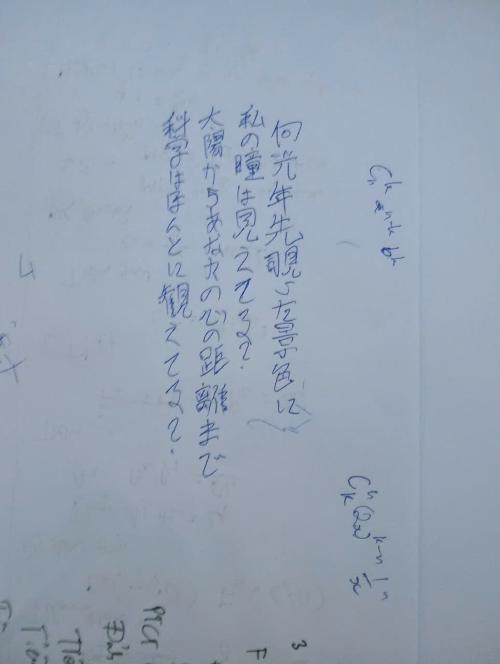 何光年先覗いた景色に
私の瞳は見えてる？
太陽からあなたの心の距離まで
科学はほんとに観えてる？
C_n^k a^{n-k} b^k
C_k^n (2x)^{k-n} \frac{1}{x}^n
3
F